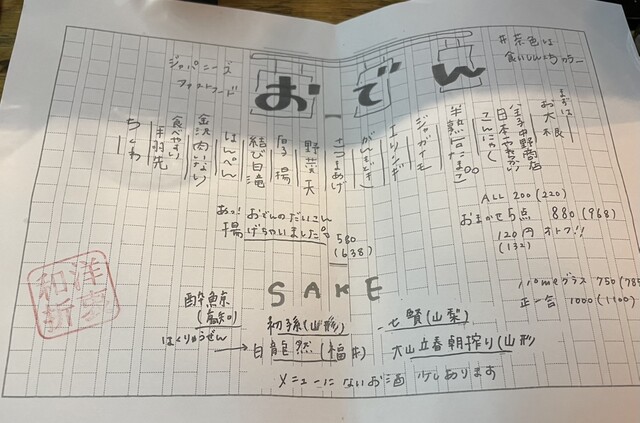 おでん
#茶色は
食いしんぼうカラー
ジャパニーズ
ファストフード
まずは
お大根
金子中野商店
日本一やわらかい
こんにゃく
半熟たまご
ジャガイモ
エリンギ
がんもどき
さつまあげ
野菜天
厚揚
結び白滝
はんぺん
金沢肉いなり
食べやすい
手羽先
ちくわ
ALL 200 (220)
おまかせ5点 880 (968)
120円オトク!!
(132)
あつ!
おでんのだいこん
揚げちゃいました 580
(638)
SAKE
グラス 750
正一合 1000 (1100)
酔鯨
(高知)
初孫(山形)
七賢(山梨)
はくりゅうぜん
→ 白龍 然(福井)
大山立春朝搾り(山形
メニューにないお酒 少しあります
和洋
折衷